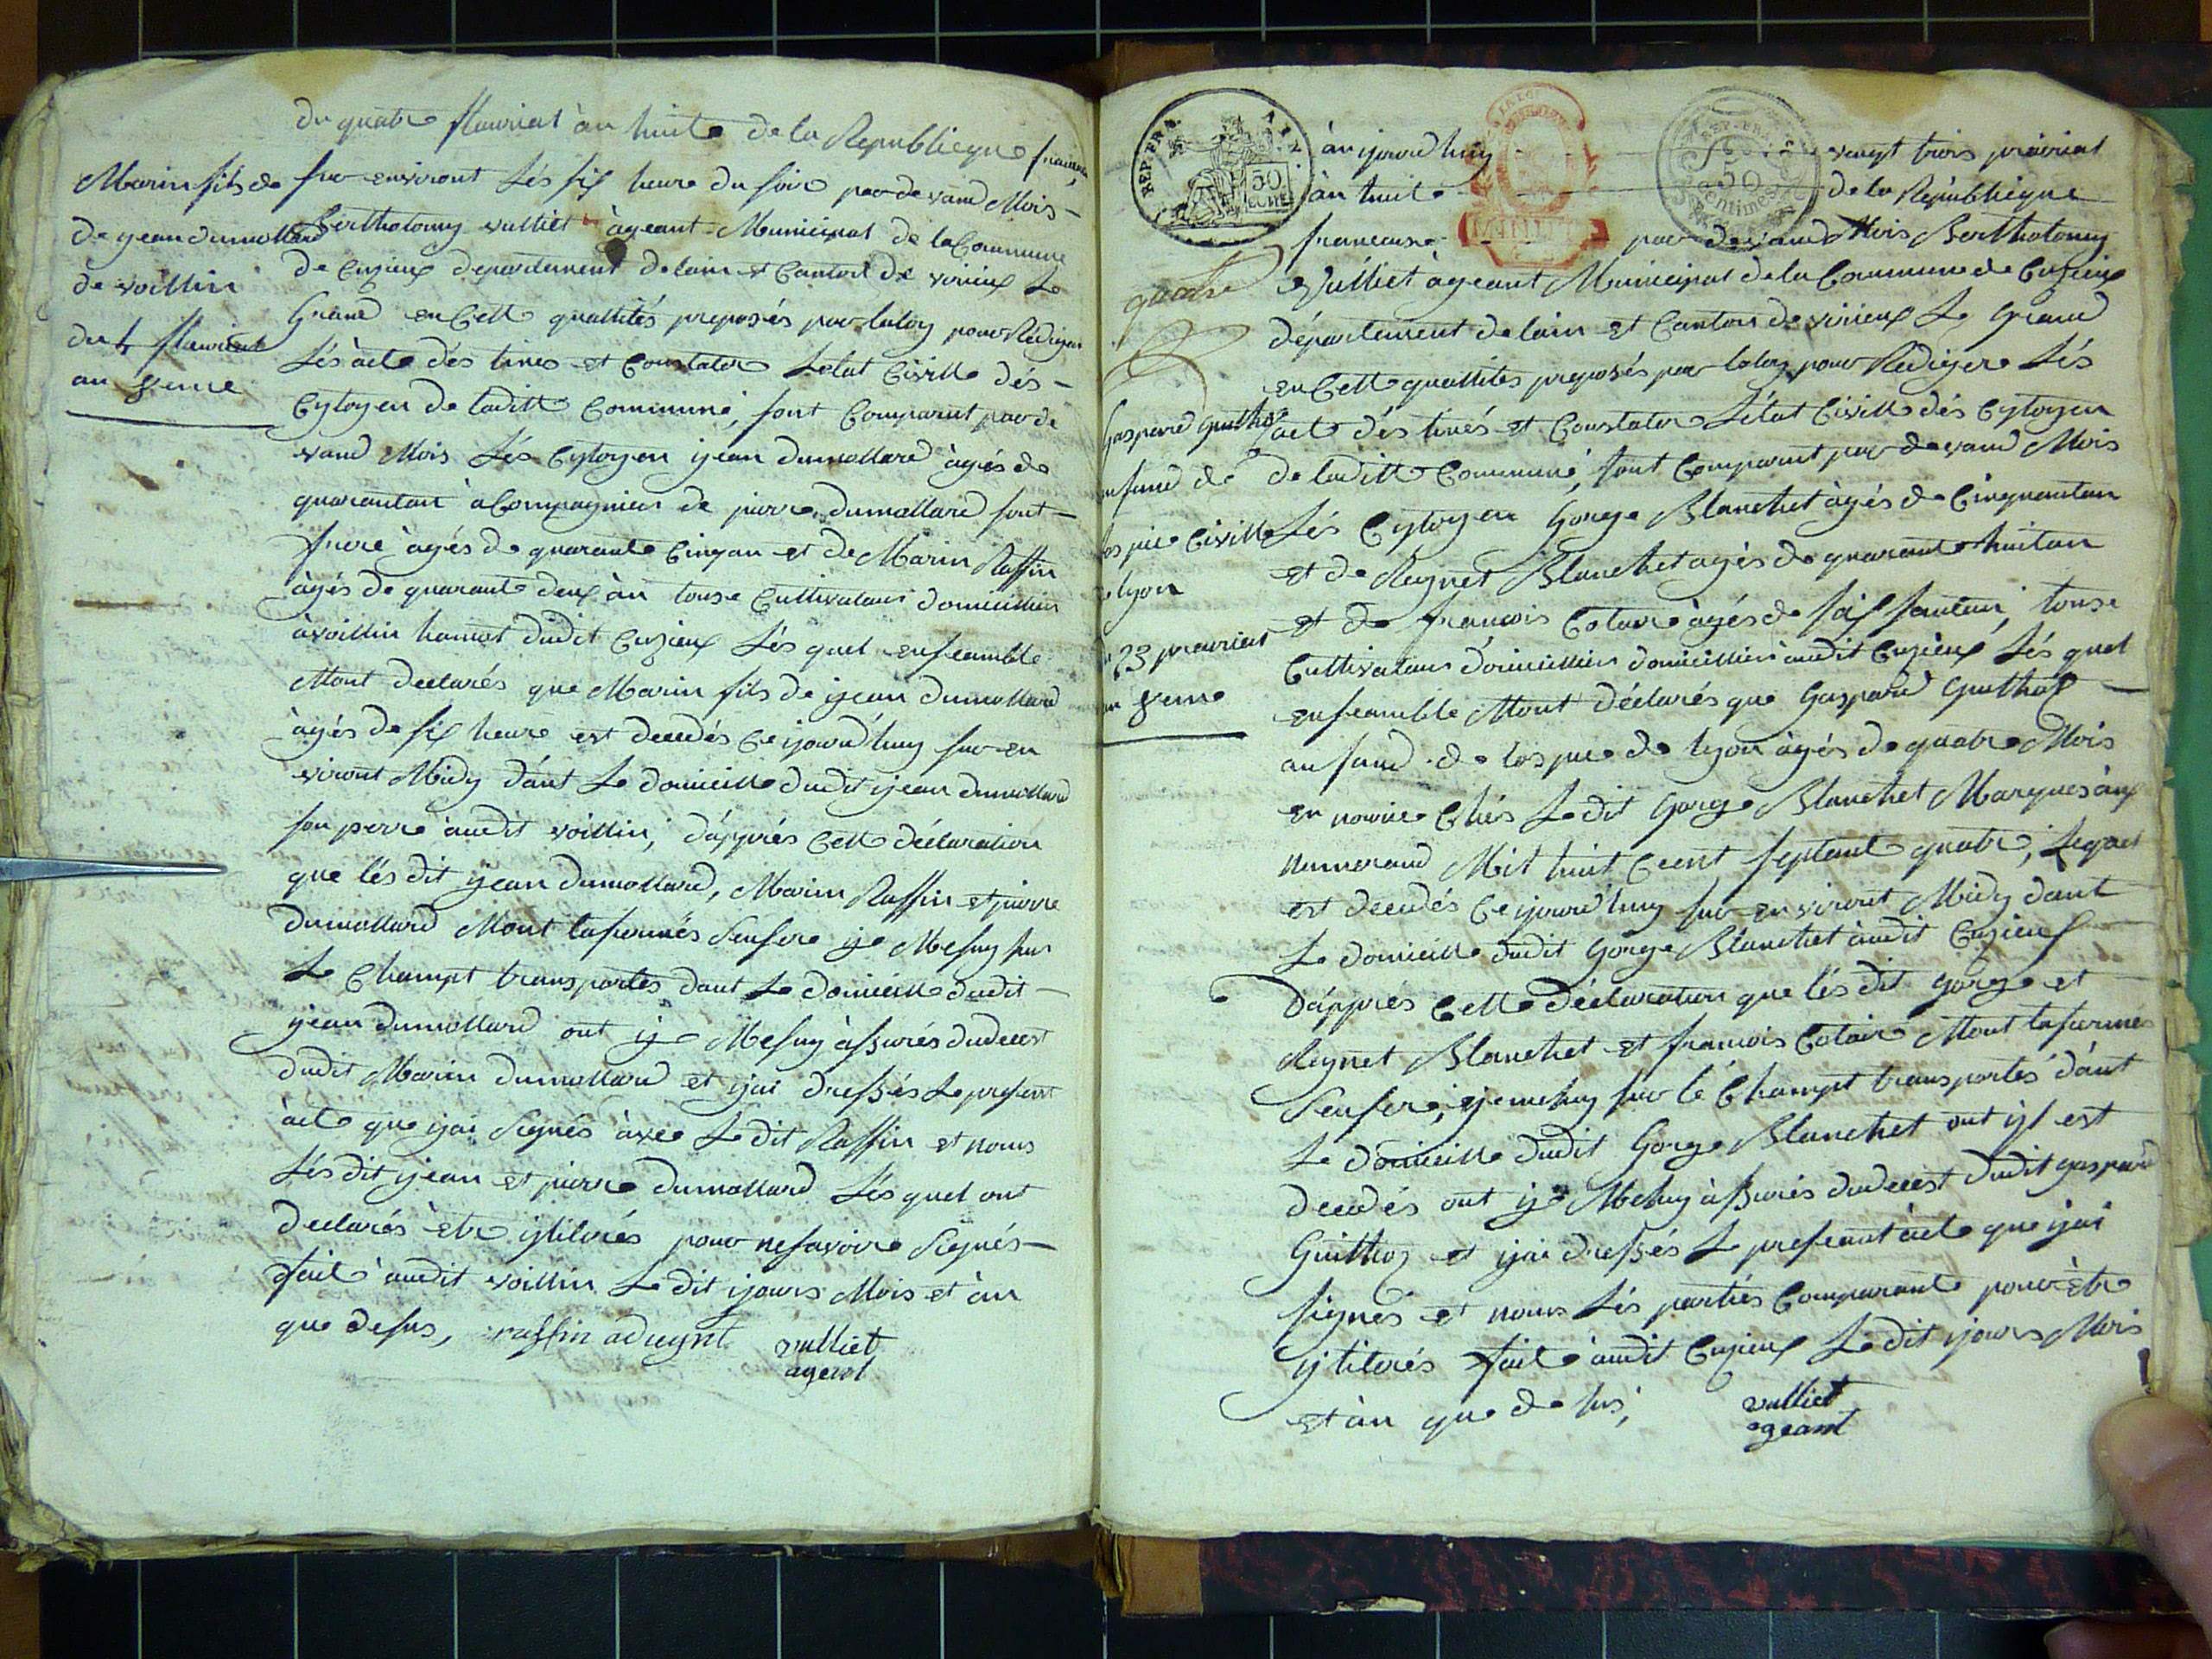 du quatre flauriat àn huite de la Republieque francaise
Marin fils de
de yean dumollard
de voillin
du 4 flauriat
an 8eme
sur environt Lés six heure du soire par de vand Mois
Bertholomy vulliet àgeant Municipal de la Commune
de Cuzieux departement delain et Canton de virieux Le
Grand en Cette quallités preposés par laloy pour Rediger
Lés àcte dés tines et Constater Letat Civille dés
Cytoyen de laditte Communé, sont Comparut par de
vand Mois Lés Cytoyen yean dumollard àgés de
quarantan àCompagnier de pierre dumollard sont
frere àgés de quarante Cinqan et de Marin Raffin
àgés de quarante deux àn touse Cultivataur domicillier
àvoillin hamot dudit Cuzieux Lés quel enseamble
Mont declarés que Marin fils de yean dumollard
àgés de six heure est decedés Ce ijourd'huy sur en
viront Midy dant Le domicille dudit yean dumollard
son perre àudit voillin, d'apprés Cette déclaration
que lés dit yean dumollard, Marin Raffin et pierre
dumollard Mont lafermés Senfere ije Mesuy sur
Le Champt transportés dant Le domicille dudit
yean dumollard ont ije Mesuy àssurés dudecest
dudit Marin dumollard et ijai dressés Le present
àcte que ijai Signés àvec Le dit Raffin et nonus
Lés dit yean et pierre dumollard Lés quel ont
declarés ètre ytilorés pour nesavoire Signés
fait àudit voillin Le dit ijours Mois et àn
que desus, raffin aduynt vulliet
agent
REP. FRA. 50 CENT.
REP. FRA. 50 Centimes
àu ijourd'huy vengt trois prairiat
àn huite de la Républieque
francaise par de vand Mois Bertholomy
Vulliet àgeant Municipal de la Commune de Cuzieux
département de lain et Canton de virieux Le Grand
en Cette quallités preposés par laloy pour Rediger Lés
àcte dés tinés et Constater Létat Civille dés Cytoyen
de laditte Communé, sont Comparut par de vand Mois
Lés Cytoyen Gorge Blanchet àgés de Cinquantan
et de Reynet Blanchet agés de quarante huitan
et de francois Colaire àgés de soissantan, touse
Cultivataur doinicillier domicillier àudit Cuzieux, Lés quel
enseamble Mont déclarés que Gaspard Guilhot
anfand de lospice de lyon àgés de quatre Mois
en nourice Chés Le dit Gorge Blanchet Marqués àux
numeraud Mil huit Ceent septante quatre, Lequel
est decedés Ce ijourd'huy sur environt Midy dant
Le domicille dudit Gorge Blanchet àudit Cuzieux
d'apprés Cette déclaration que lés dit Gorge et
Reynet Blanchet et francois Colaire Mont lafermer
Senfere, ije mesuy sur lé Champt transportés d'ant
Le domicille dudit Gorge Blanchet ont ijl est
decedés ont ije Mesuy àssurés dudecest dudit gaspard
Guilhoz et ijai dressés Le preseant àcte que ijai
signés et nonus Lés partiés Comparante pour ètre
ytilorés fait àudit Cuzieux Le dit ijours Mois
et àn que de sus, vulliet
ageant
quatre
Gaspard Guilhot
anfand de
lospice Civille
de lyon
du 23 preuriat
an 8eme